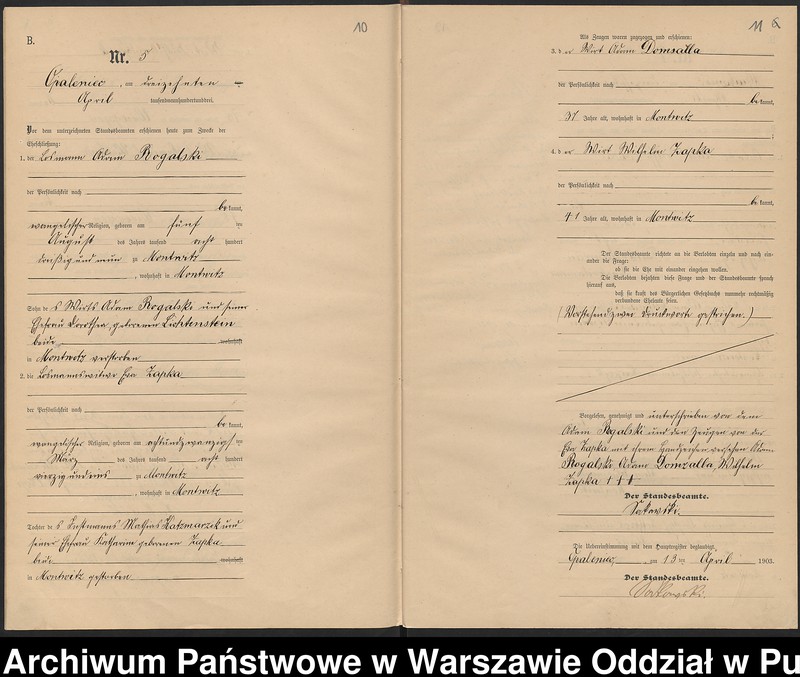 10
B.
Nr. 5
Opaleniec, am dreizehnten
April tausendneunhundertunddrei.
Vor dem unterzeichneten Standesbeamten erschienen heute zum Zwecke der
Eheschließung:
1. der Losmann Adam Rogalski
der Persönlichkeit nach
be kannt,
evangelischer Religion, geboren am fünf ten
August des Jahres tausend acht hundert
dreißig und neun zu Montwitz
, wohnhaft in Montwitz
Sohn des Wirts Adam Rogalski und seiner
Ehefrau Dorothea, geborenen Lichtenstein
beide wohnhaft
in Montwitz verstorben
2. die Losmannswitwe Eva Zapka
der Persönlichkeit nach
be kannt,
evangelischer Religion, geboren am achtundzwanzigsten
März des Jahres tausend acht hundert
vierzig und eins zu Montwitz
, wohnhaft in Montwitz
Tochter des Instmanns Mathes Katzmarzek und
seiner Ehefrau Katharina geborenen Zapka
beide wohnhaft
in Montwitz gestorben
11
Als Zeugen waren zugezogen und erschienen:
3. der Wirt Adam Domzalla
der Persönlichkeit nach
be kannt,
37 Jahre alt, wohnhaft in Montwitz
;
4. der Wirt Wilhelm Zapka
der Persönlichkeit nach
be kannt,
41 Jahre alt, wohnhaft in Montwitz
Der Standesbeamte richtete an die Verlobten einzeln und nach ein-
ander die Frage:
ob sie die Ehe mit einander eingehen wollen.
Die Verlobten bejahten diese Frage und der Standesbeamte sprach
hierauf aus,
daß sie kraft des Bürgerlichen Gesetzbuchs nunmehr rechtmäßig
verbundene Eheleute seien.
(Vorstehend zwei Druckworte gestrichen.)
Vorgelesen, genehmigt und unterschrieben von dem
Adam Rogalski und den Zeugen von der
Eva Zapka mit ihrem Handzeichen versehen Adam
Rogalski, Adam Domzalla, Wilhelm
Zapka +++
Der Standesbeamte.
Sakowski.
Die Uebereinstimmung mit dem Hauptregister beglaubigt
Opaleniec, am 13 ten April 1903.
Der Standesbeamte.
Sakowski.
Archiwum Państwowe w Warszawie Oddział w Pu